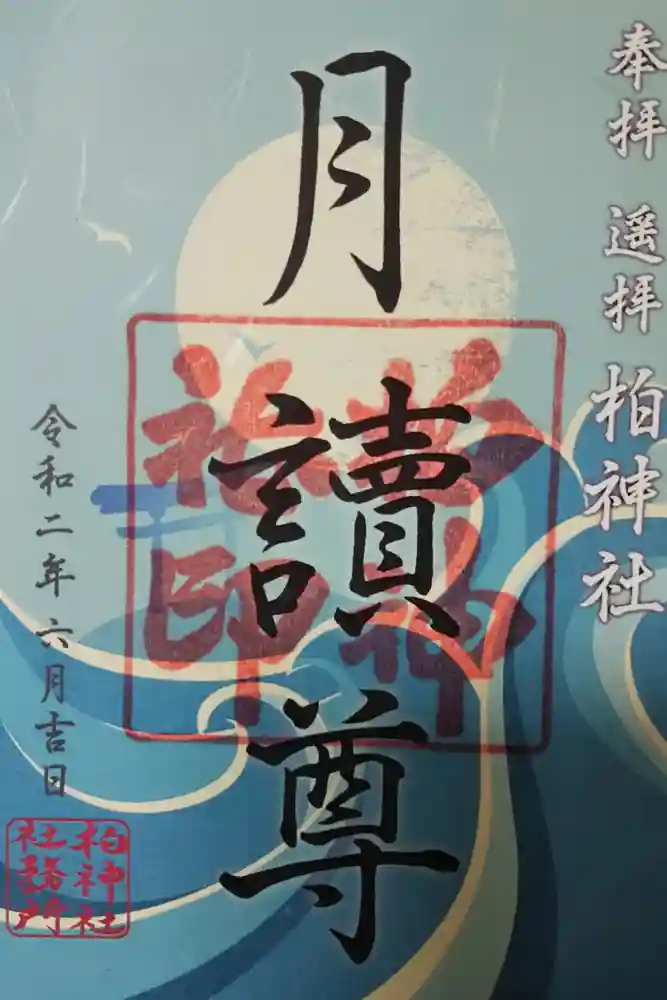 奉拝 遥拝 柏神社
月讀尊
令和二年六月吉日
柏神社
社務所